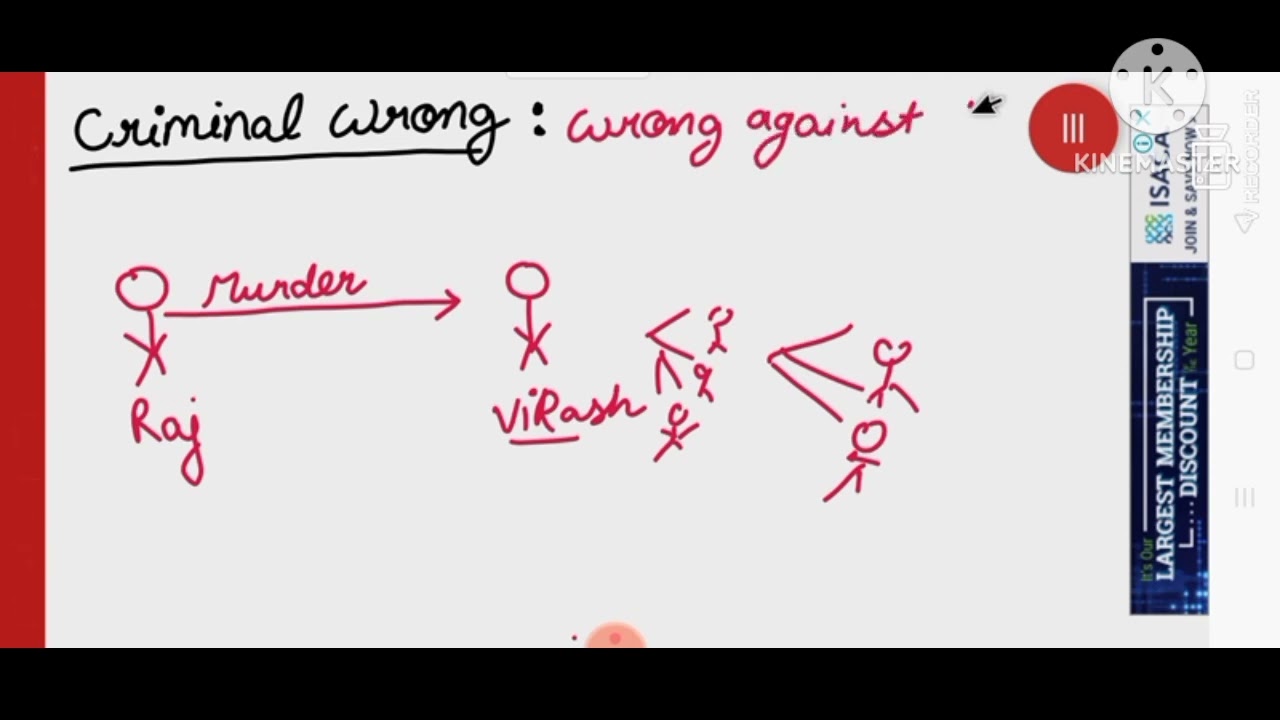 Criminal wrong : wrong against
KINEMASTER
RECORDER
Murder
Raj
ViRash
JOIN & SAVE NOW
It's Our
LARGEST MEMBERSHIP
DISCOUNT
Year